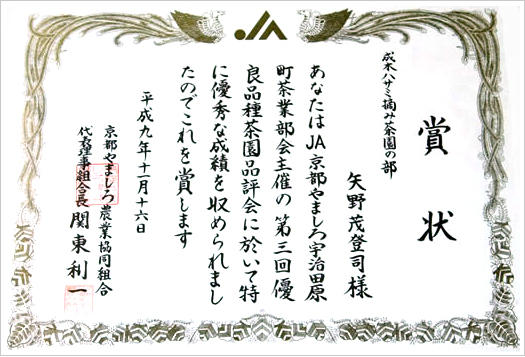 JA
賞状
成木ハサミ摘み茶園の部
矢野茂登司様
あなたはJA京都やましろ宇治田原
町茶業部会主催の第三回優
良品種茶園品評会に於いて特
に優秀な成績を収められまし
たのでこれを賞します
平成九年十一月十六日
京都やましろ農業協同組合
代表理事組合長 関東利一